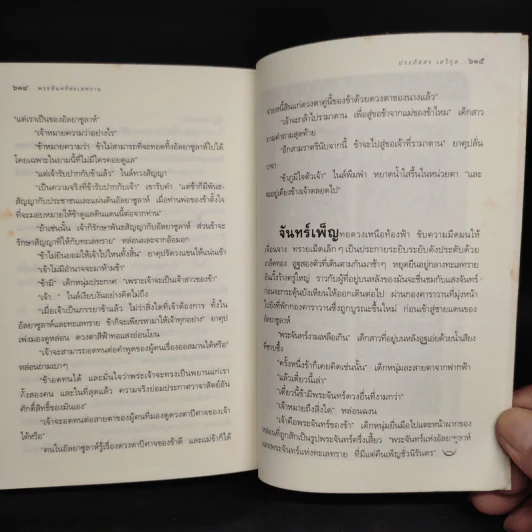 ๖๑๔ พระจันทร์ทะเลทราย
"แต่เราเป็นของอัลยาซูลาห์"
"เจ้าหมายความว่าอย่างไร"
"ข้าหมายความว่า ข้าไม่สามารถที่จะทอดทิ้งอัลยาซูลาห์ไปได้
โดยเฉพาะในยามนี้ที่ไม่มีใครคอยดูแล"
"แต่เจ้ารับปากกับข้าแล้ว" ไนล์ทวงสัญญา
"เป็นความจริงที่ข้ารับปากกับเจ้า" เขารับคำ "แต่ข้าก็มีพันธะ
สัญญากับประชาชนและแผ่นดินอัลยาซูลาห์ เมื่อท่านพ่อของข้าตั้งใจ
ที่จะมอบหมายให้ข้าดูแลดินแดนนี้ต่อจากท่าน"
"ถ้าเช่นนั้น เจ้าก็รักษาพันธะสัญญากับอัลยาซูลาห์ ส่วนข้าจะ
รักษาสัญญาที่ให้กับทะเลทราย" หล่อนผละจากอ้อมอก
"ข้าไม่ยินยอมให้เจ้าไปไหนทั้งสิ้น" ยาคุปรัดวงแขนให้แน่นเข้า
"เจ้าไม่มีอำนาจจะมาห้ามข้า"
"ข้ามี" เด็กหนุ่มประกาศ "เพราะเจ้าจะเป็นเจ้าสาวของข้า"
"เจ้า..." ไนล์เงียบงันอย่างคิดไม่ถึง
"เมื่อเจ้าเป็นภรรยาข้าแล้ว ไม่ว่าสิ่งใดที่เจ้าต้องการ ทั้งใน
อัลยาซูลาห์และทะเลทราย ข้าก็จะเพียรหามาให้เจ้าทุกอย่าง" ยาคุป
เพ่งมองดูหล่อน ดวงตาสีฟ้าทอแสงอ่อนโยน
"เจ้าจะสามารถอดทนต่อคำพูดของผู้คนเรื่องอสสมานได้หรือ"
หล่อนถามเบาๆ
"ข้าอดทนได้ และมั่นใจว่าพระเจ้าจะทรงเป็นพยานแก่เรา
ทั้งสองคน และในที่สุดแล้ว ความจริงย่อมประกาศวาจาสิตย์อัน
ศักดิ์สิทธิ์ของมันเอง"
"เจ้าจะอดทนต่อสายตาของผู้คนที่มองดูดวงตาปีศาจของเจ้า
ได้หรือ"
"คนในอัลยาซูลาห์รู้เรื่องดวงตาปีศาจของข้าดี และแม่ข้าก็ได้
ประภัสสร เสวิกุล ๖๑๕
จ่ายหนี้สินแก่ดวงตาคู่นี้ของข้าด้วยดวงตาของนางแล้ว"
"เจ้าจะกล้าไปรามาดาน เพื่อสู่ขอข้าจากแม่ของข้าไหม" เด็กสาว
ถามคำถามสุดท้าย
"อีกสามราตรีนับจากนี้ ข้าจะไปสู่ขอเจ้าที่รามาดาน" ยาคุปลั่น
วาจา
"ข้าภูมิใจตัวเจ้า" ไนล์พึมพำ หยาดน้ำใสรื้นในหน่วยตา "และ
จะอยู่เคียงข้างเจ้าตลอดไป"
จันทร์เพ็ญ ทอดวงเหนือท้องฟ้า ขับความมืดมนให้
เลื่อนจาง ทรายเม็ดเล็กๆ เป็นประกายระยิบระยับดังประดับด้วย
เกล็ดทอง อูฐสองตัวที่เดินตามกันมาช้าๆ หยุดยืนอยู่กลางทะเลทราย
อันเวิ้งว้างครู่ใหญ่ ราวกับผู้ที่อยู่บนหลังของมันจะชื่นชมกับแสงจันทร์
ก่อนจะกระตุ้นบังเหียนให้ออกเดินต่อไป ผ่านกองคาราวานที่มุ่งหน้า
ไปยังที่พักกองคาราวานซึ่งถูกบูรณะขึ้นใหม่ ก่อนเข้าสู่ชายแดนของ
อัลยาซูลาห์
"พระจันทร์งามเหลือเกิน" เด็กสาวที่อยู่บนหลังอูฐเอ่ยด้วยน้ำเสียง
ที่ซาบซึ้ง
"ครั้งหนึ่งข้าก็เคยคิดเช่นนั้น" เด็กหนุ่มละสายตาจากฟากฟ้า
"แล้วเดี๋ยวนี้เล่า"
"เดี๋ยวนี้ข้ามีพระจันทร์ดวงอื่นที่งามกว่า"
"เจ้าหมายถึงสิ่งใด" หล่อนฉงน
"เจ้าคือพระจันทร์ของข้า" เด็กหนุ่มยื่นมือไปแตะหน้าผากของ
หล่อนที่ถูกสักเป็นรูปพระจันทร์ครึ่งเสี้ยว "พระจันทร์แห่งอัลยาซูลาห์
และพระจันทร์แห่งทะเลทราย ที่มีแต่คืนเพ็ญชั่วนิรันดร"